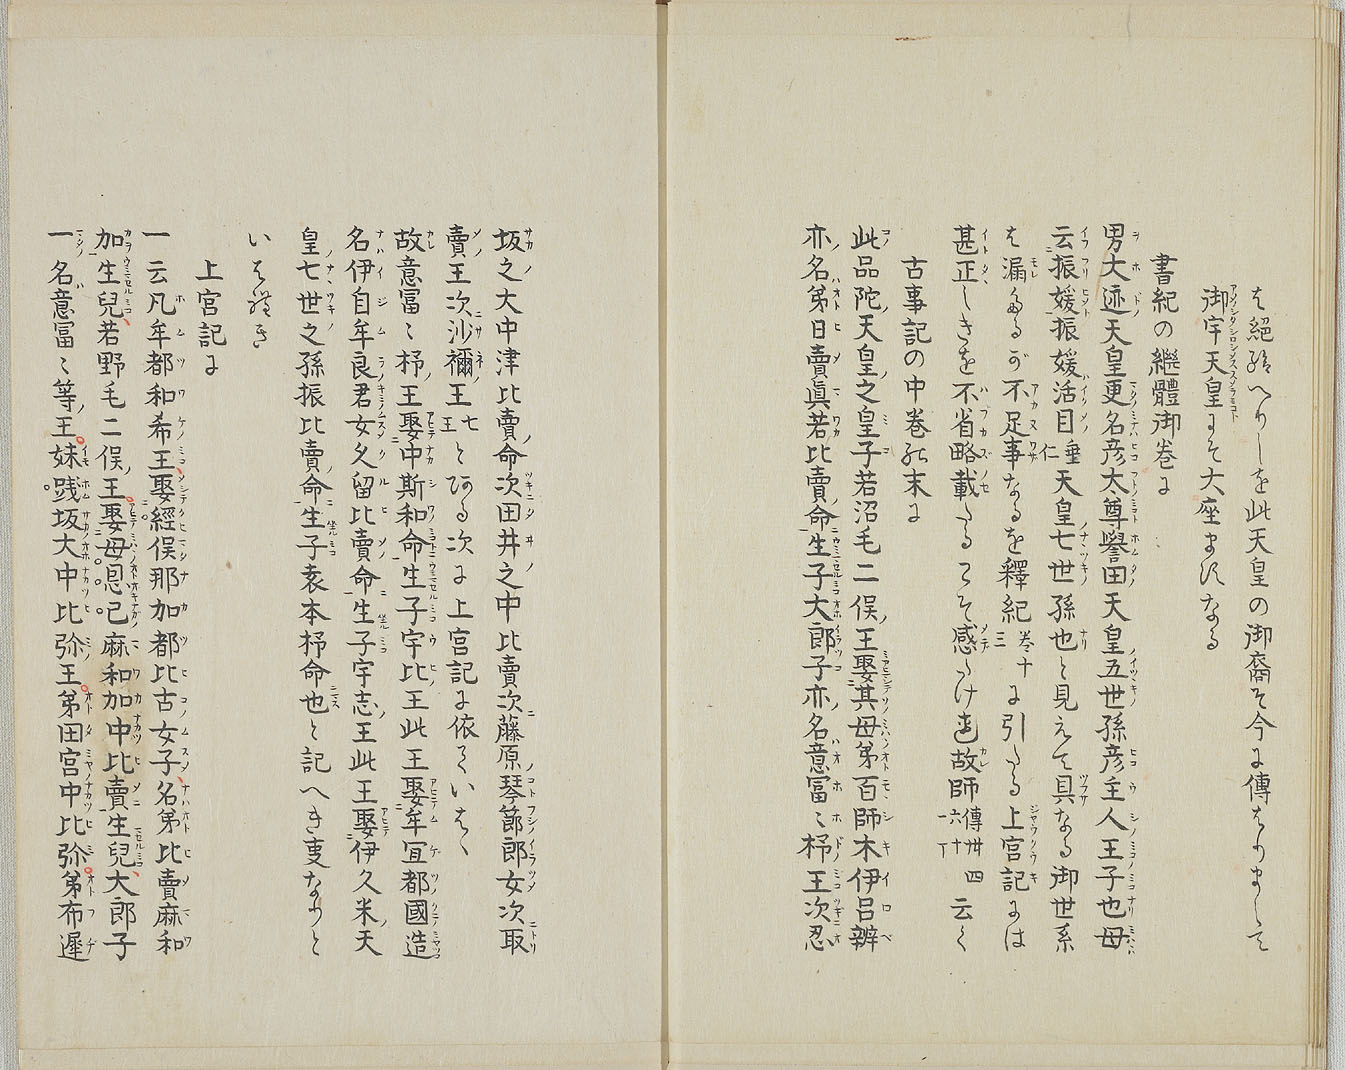 は絶給へりしを此天皇の御裔そ今に傳はりましまして
御宇天皇にそ大座ましけなる
書紀の繼體御卷に
男大迹天皇更名彦太尊譽田天皇五世孫彦主人王子也母
云振媛振媛活目垂仁天皇七世孫也と見えて具なる御世系
は漏たるが不足事なるを釋紀卷十三に引たる上宮記には
甚正しきを不省略載たるこそ感たけれ故師傳卅四六十一丁云く
古事記の中卷の末に
此品陀天皇之皇子若沼毛二俣王娶其母弟百師木伊呂辨
亦名弟日賣眞若比賣命生子大郎子亦名意富〻杼王次忍
坂之大中津比賣命次田井之中比賣次藤原琴節郎女次取
賣王次沙禰王七王とある次に上宮記に依ていはく
故意富〻杼王娶中斯和命生子宇比王此王娶牟宜都國造
名伊自牟良君女久留比賣命生子宇志王此王娶伊久米天
皇七世之孫振比賣命生子袁本杼命也と記へき事なりと
いはれき
上宮記に
一云凡牟都和希王娶經俣那加都比古女子名弟比賣麻和
加生兒若野毛二俣王娶母恩已麻和加中比賣生兒大郎子
一名意富〻等王妹踐坂大中比弥王弟田宮中比弥弟布遲